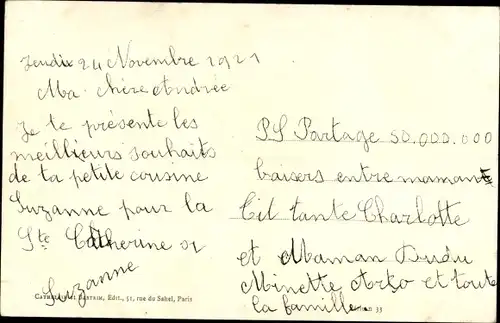 Jeudi 24 Novembre 1921
Ma chère Andrée
Je te présente les
meilleurs souhaits
de ta petite cousine
Suzanne pour la
Ste Catherine
Suzanne
PS Partage 50.000.000
baisers entre maman
tante Charlotte
et Maman Dudu
Minette et toute
la famille
Édit., 51, rue du Paris
33